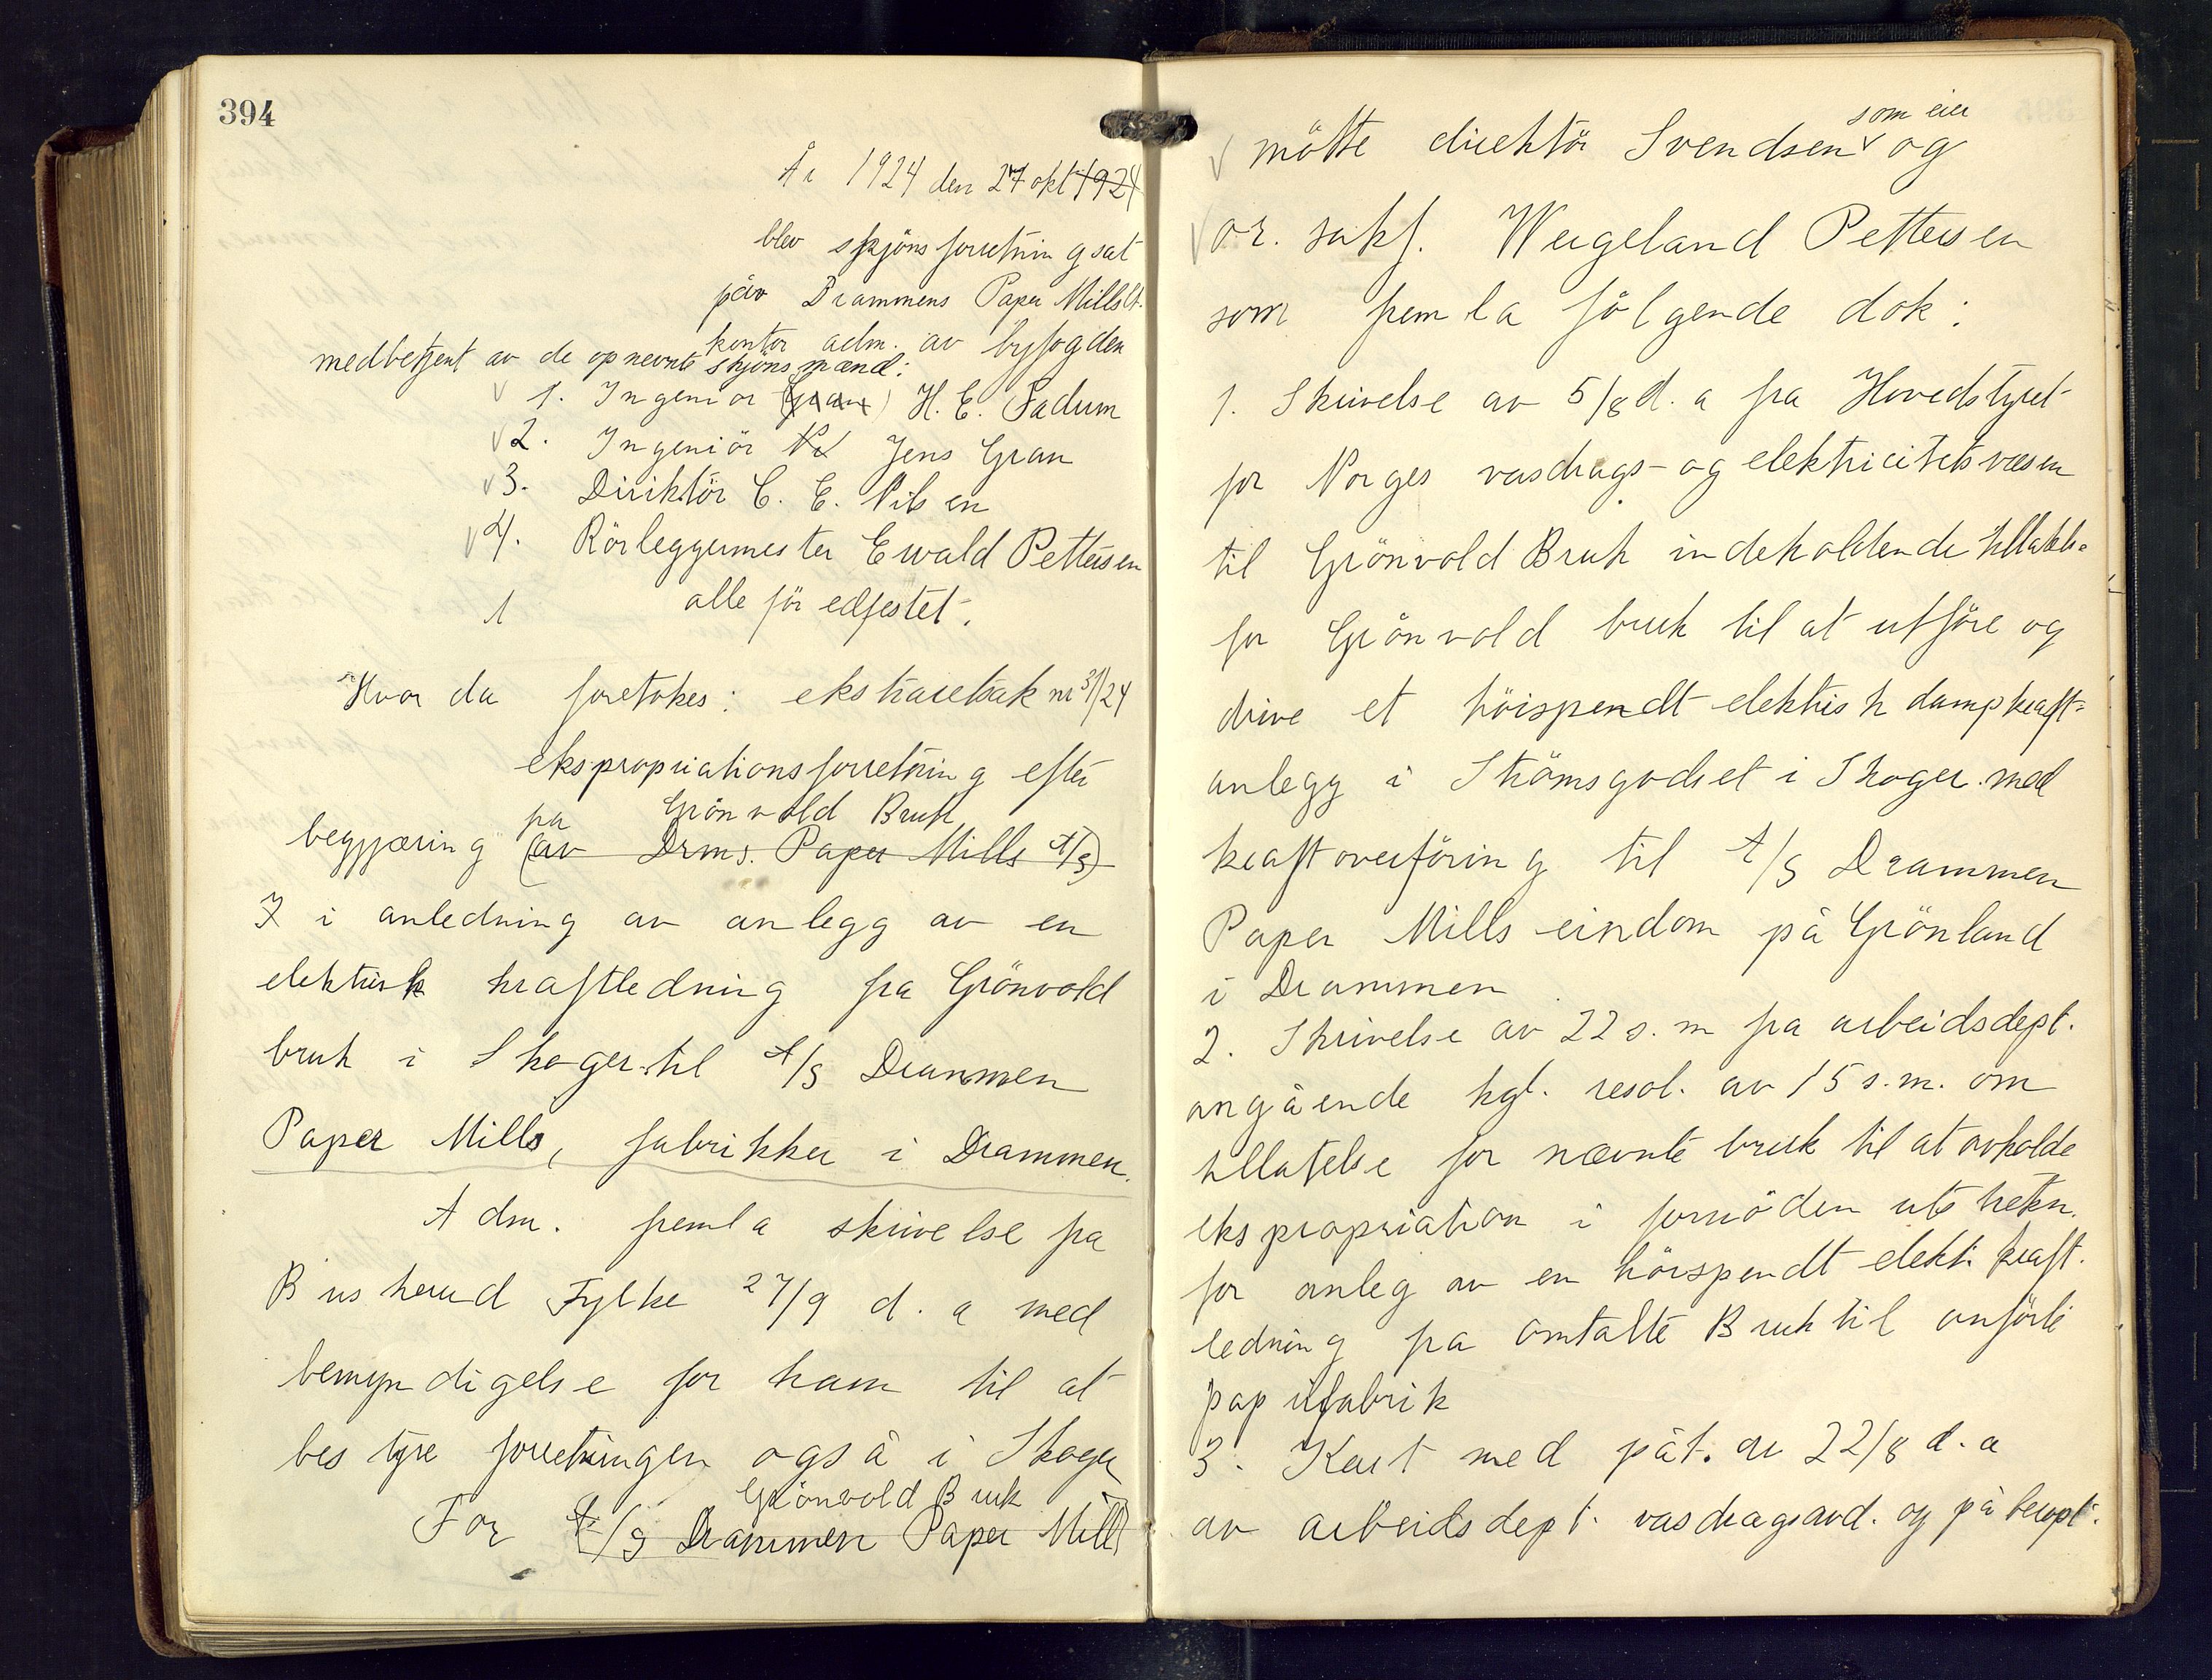 394
År 1924 den 27 okt 1924
blev skjönsforretning sat
på Drammens Paper Mills
kontor adm. av byfogden
medbetjent av de opnevnte skjönsmænd:
1. Ingeniör (Gran) H. E. Fadum
2. Ingeniör Jens Gran
3. Direktör C. E. Nilsen
4. Rörleggermester Ewald Pettersen
alle för edfestet.
Hvor da foretokes: ekstraretsak nr 31/24
ekspropriationsforretning efter
fra Grönvold Bruk
begjæring (av Drms. Paper Mills A/S)
i anledning av anlegg av en
elektrisk kraftledning fra Grönvold
bruk i Skoger til A/S Drammen
Paper Mills, fabrikker i Drammen.
Adm. fremla skrivelse fra
Buskerud Fylke 27/9 d. a med
bemyndigelse for ham til at
bestyre forretningen også i Skoger
Grönvold Bruk
For A/S Drammen Paper Mills
som eier
mötte direktör Svendsen og
or. sakf. Weigeland Pettersen
som fremla fölgende dok:
1. Skrivelse av 5/8 d. a fra Hovedstyret
for Norges vasdrags- og elektricitetsvæsen
til Grönvold Bruk indeholdende tillatelse
for Grönvold bruk til at utföre og
drive et höispendt elektrisk dampkraft-
anlegg i Strömsgodset i Skoger med
kraftoverföring til A/S Drammen
Paper Mills eindom på Grönland
i Drammen
2. Skrivelse av 22 s. m fra arbeidsdept.
angående kgl. resol. av 15 s. m. om
tillatelse for nævnte bruk til at avholde
ekspropriation i fornöden utstrekn.
for anleg av en höispendt elektr. kraft-
ledning fra omtalte Bruk til anförte
papirfabrik
3. Kart med påt. av 22/8 d. a
av arbeidsdept. vasdragsavd. og på